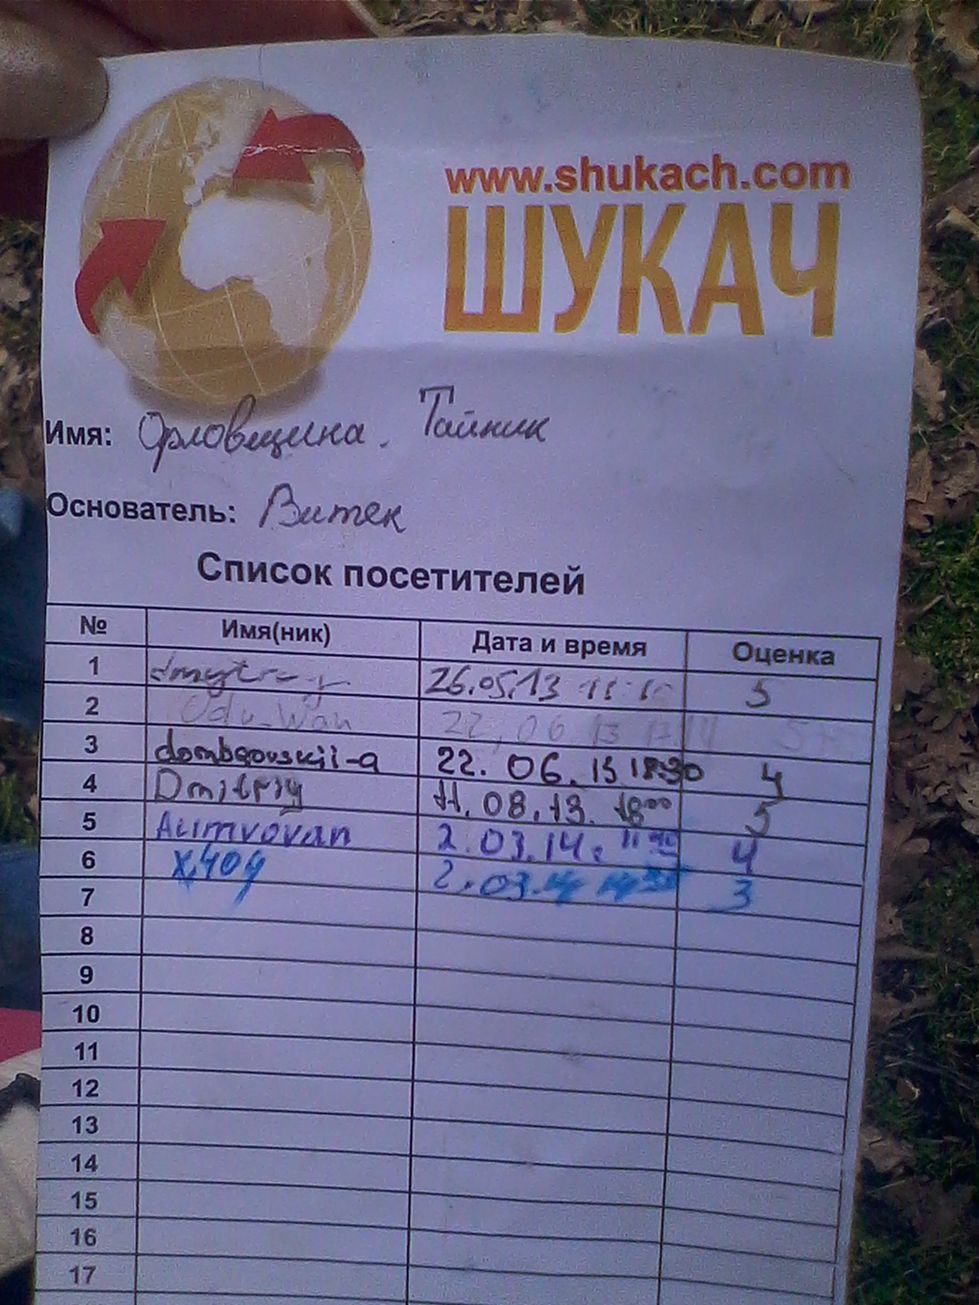 www.shukach.com
ШУКАЧ
Имя: Орловщина. Тайник
Основатель: Витек
Список посетителей
№ Имя(ник) Дата и время Оценка
1 26.05.13 5
2 22,06 13 5
3 dombrovskii-a 22.06.13 18:30 4
4 Dmitriy 11.08.13. 18 00 5
5 Alimvovan 2.03.14. 4
6 2.03.14 3
7
8
9
10
11
12
13
14
15
16
17